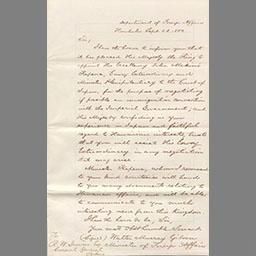 Department of Foreign Affairs
Honolulu Sept 22, 188
Sir,
I have the honor to inform you that
it has pleased His Majesty the King to
appoint His Excellency John Makini
Kapena, Envoy Extraordinary and
Minister Plenipotentiary to the Court of
Japan, for the purpose of negotiating
if possible an immigration convention
with the Imperial Government, and
His Majesty confiding in your
experience in Japan and faithful
regard to Hawaiian interests, trusts
that you will assist His Envoy
Extraordinary in any negotiation
that may arise.
Minister Kapena, whom I commend
to your kind courtesies will hand
to you many documents relating to
Hawaiian affairs, and will be able
to communicate to you much
interesting news from this Kingdom.
I have the honor to be, Sir,
Your most Obt Humble Servant
(Signed) Walter Murray Gibson
Minister of Foreign Affairs
To
R. W. Irwin